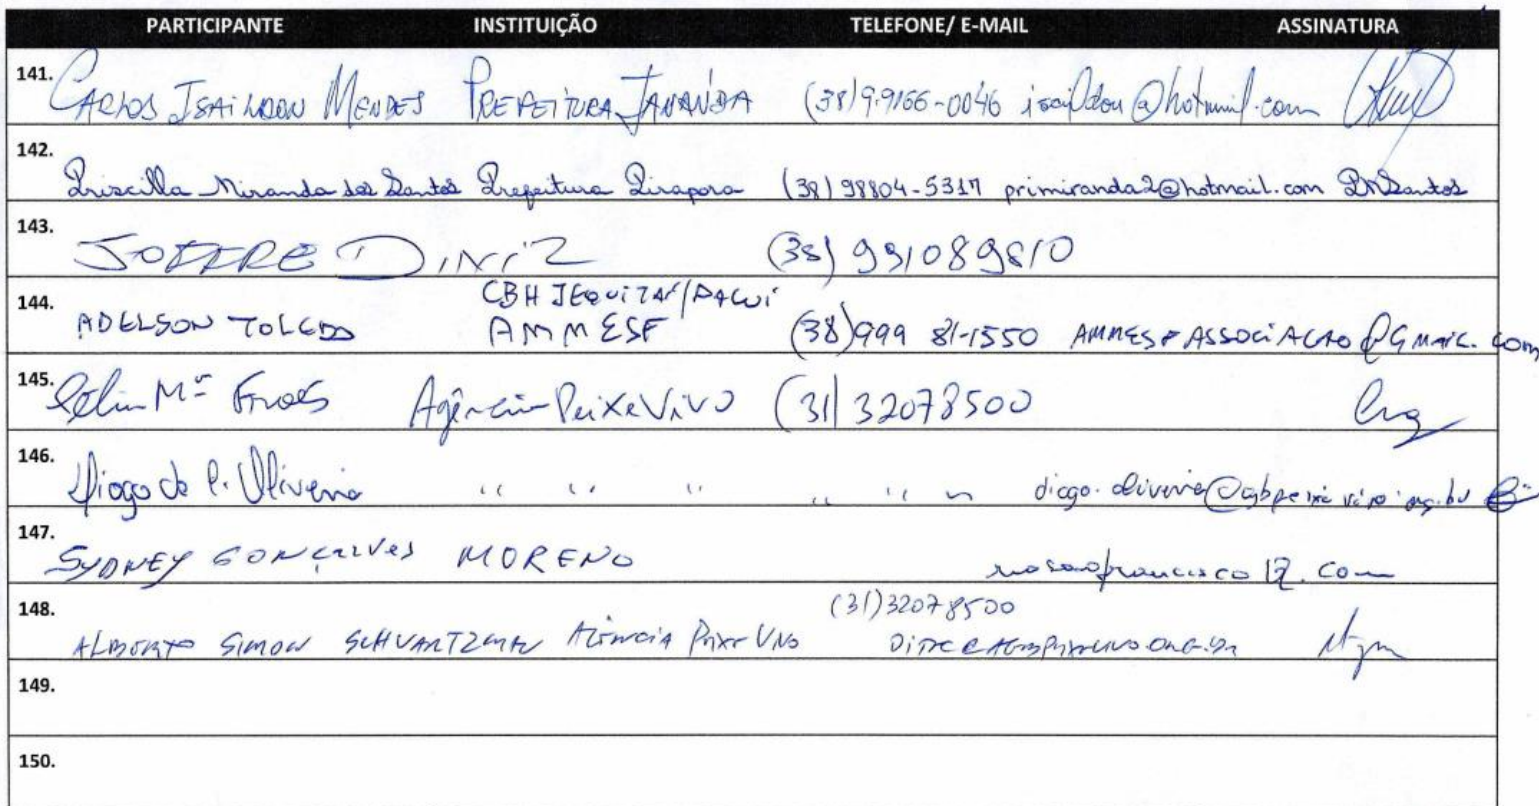 PARTICIPANTE INSTITUIÇÃO TELEFONE/ E-MAIL ASSINATURA
141. CARLOS ISAILDON MENDES PREFEITURA JANAÚBA (38)9.9166-0046 isaildon@hotmail.com
142. Priscilla Miranda dos Santos Prefeitura Pirapora (38) 98804-5317 primiranda2@hotmail.com PMSantos
143. JOFFRE DINIZ (38) 991089810
CBH JEQUITAÍ/PACUÍ
144. ADELSON TOLEDO AMMESF (38)999 81-1550 AMMESFASSOCIACAO@GMAIL.COM
145. Célia Mª Froes Agência Peixe Vivo (31) 32078500
146. Diogo de P. Oliveira " " " " " " diogo.oliveira@agbpeixevivo.org.br
147. SYDNEY GONÇALVES MORENO
(31)32078500
148. ALBERTO SIMON SCHVARTZMAN AGÊNCIA PEIXE VIVO
149.
150.